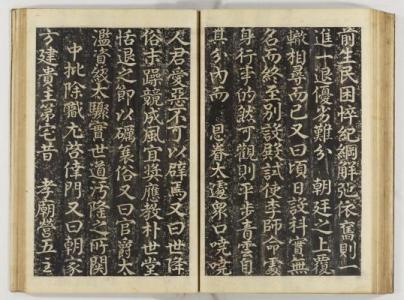 前生民困悴紀綱解弛依舊則一
進一退優劣難分 朝廷之上覆
轍相尋而已又曰頃日設科賞無
名而終至別設殿試使李師命處
身行事的然可觀則平步青雲自
其分內而 恩眷大遽衆口嘵嘵
人君愛惡不可以辟焉又曰世降
俗末躁競成風宜奬應教朴世堂
恬退之節以礪衰俗又曰官爵太
濫眷錢太驟實世道汚隆之所關
中批除職尤啓倖門又曰朝家
方建貴主第宅昔 孝廟營五主